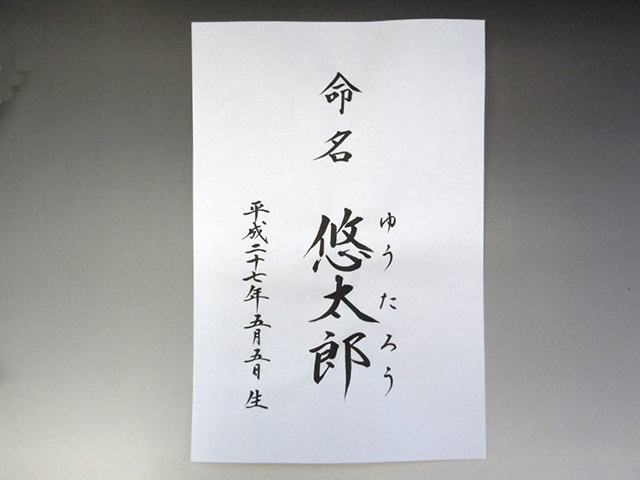 命名
ゆうたろう
悠太郎
平成二十七年五月五日生